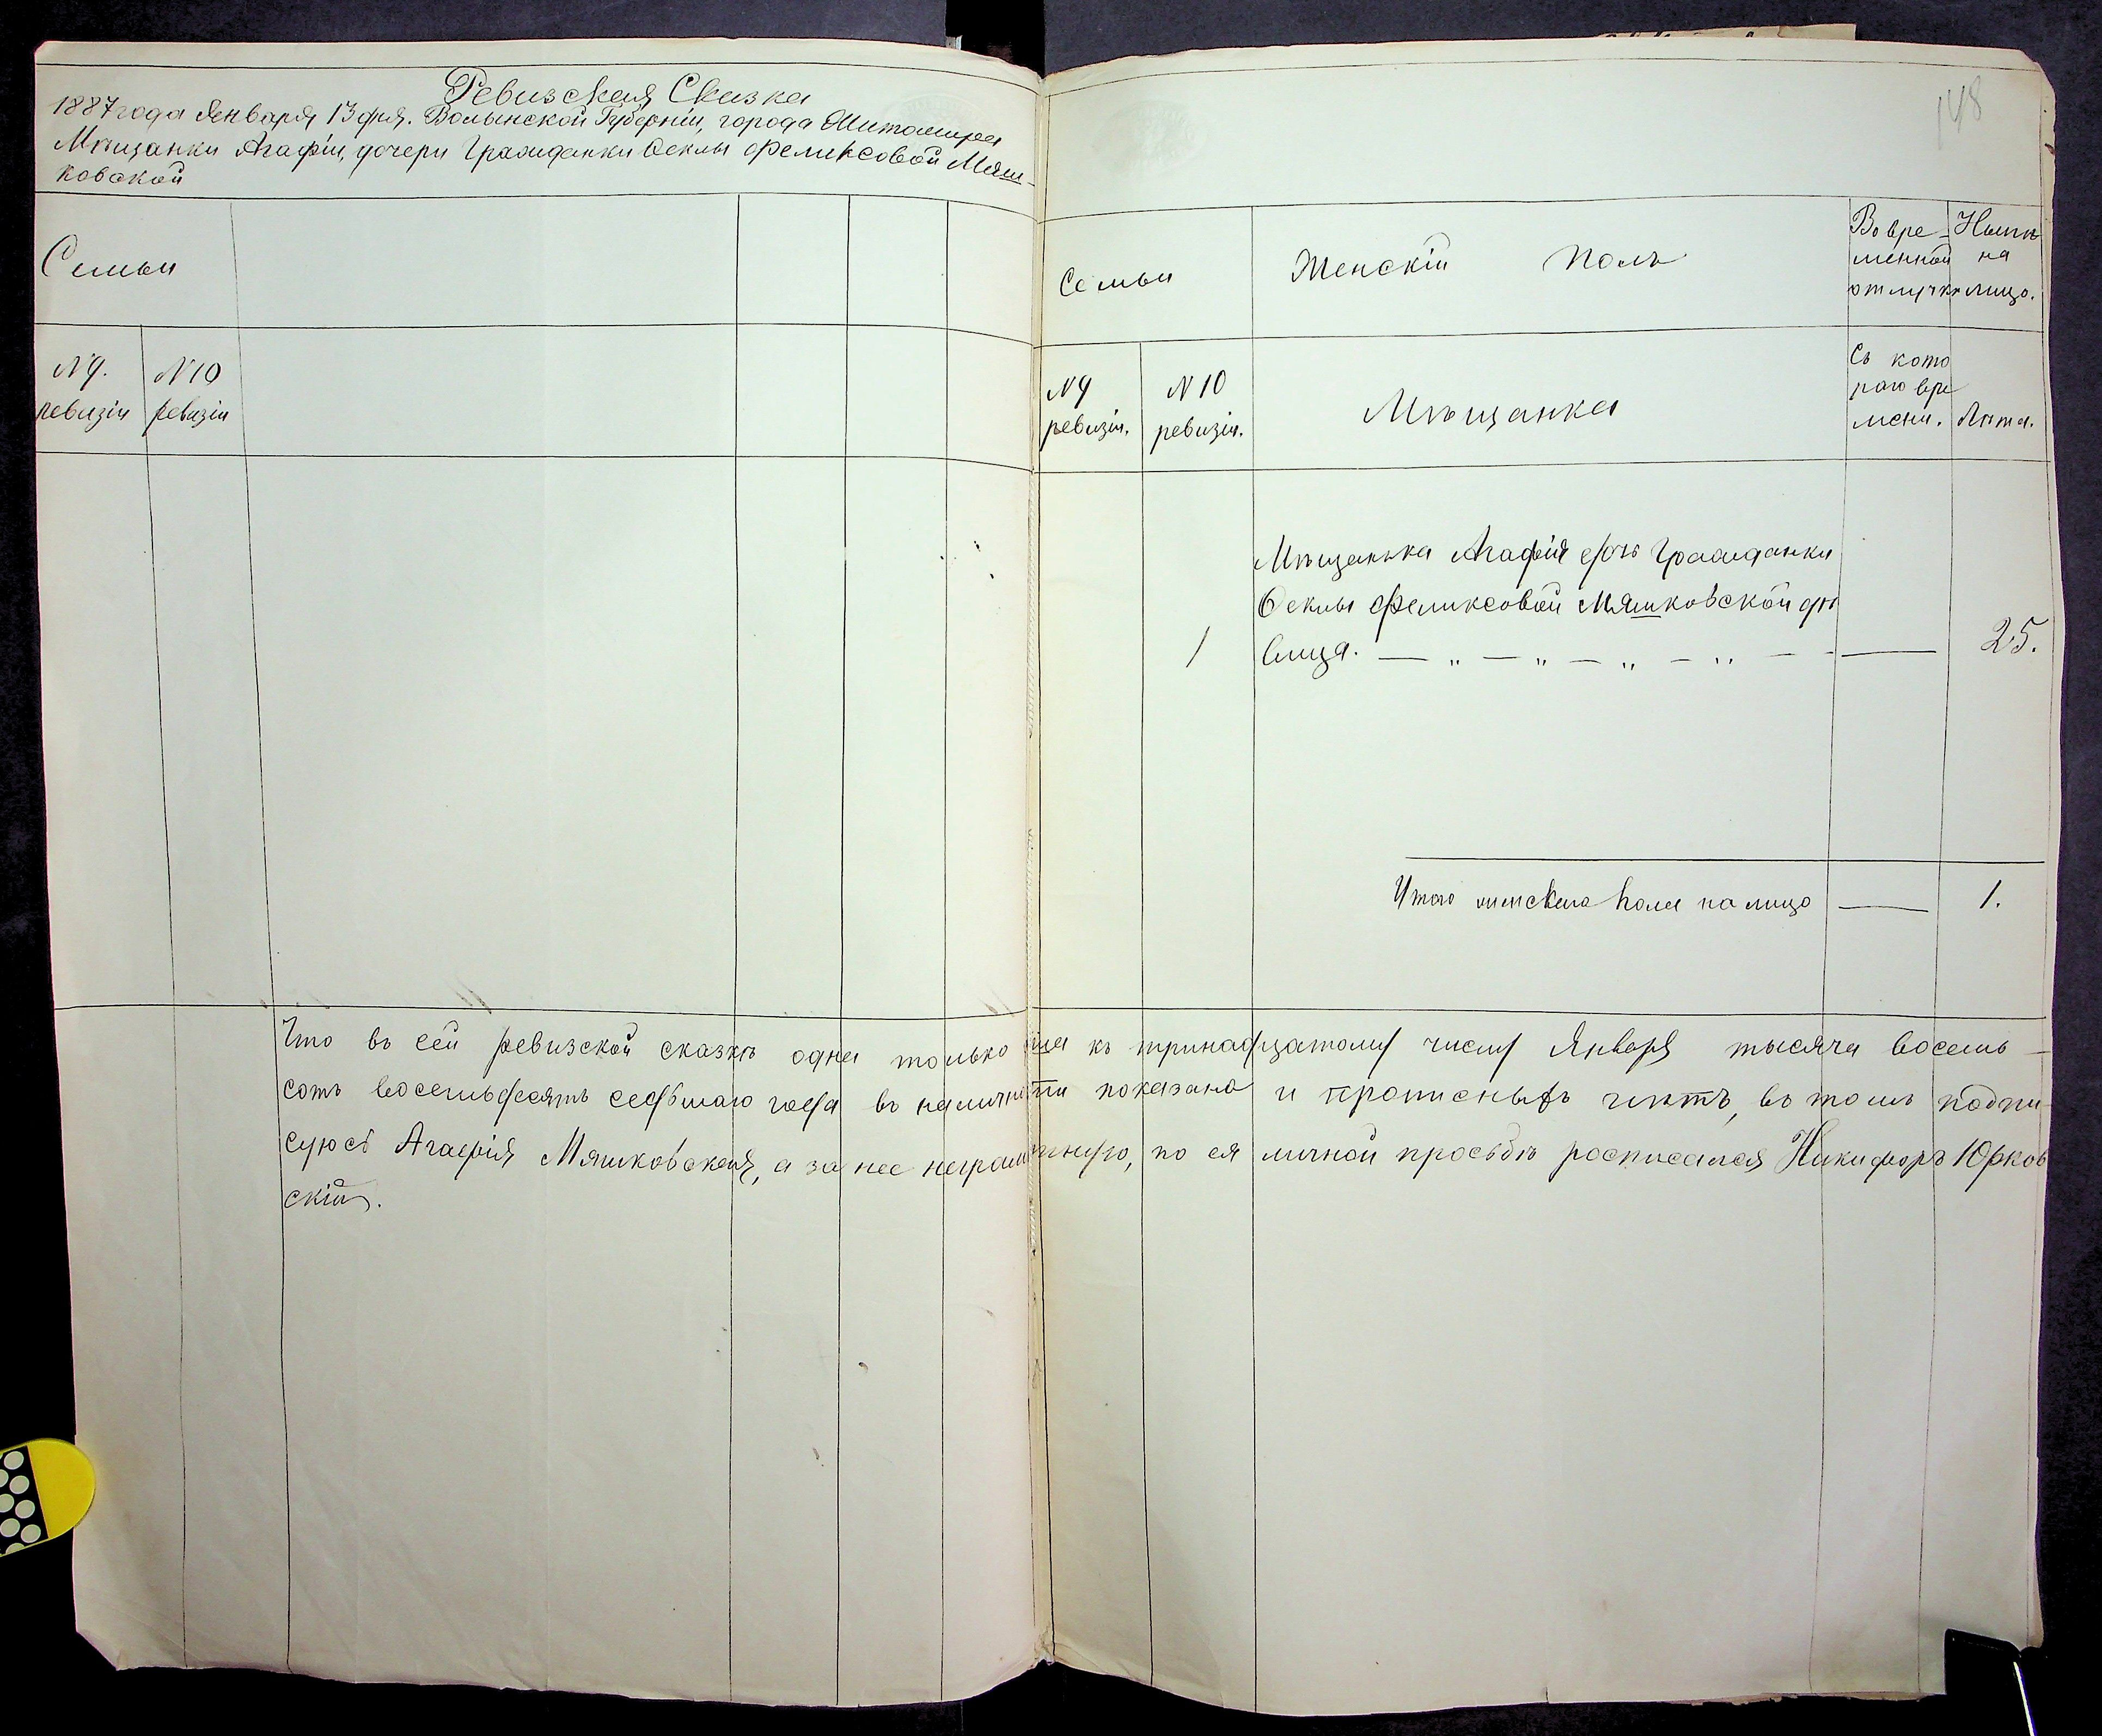 Ревизская Сказка
1887 года Января 13 дня. Волынской Губерніи, города Житомира
Мѣщанки Агафіи, дочери Гражданки Ѳеклы Феликсовой Мяш-
ковской
Семьи
N 9. ревизіи
N 10 ревизіи
148
Семьи
Женскій Полъ
Во вре-
менной
отлучкѣ
Нынѣ
на
лицо.
N 9 ревизіи.
N 10 ревизіи.
Мѣщанка
Съ кото
раго вре
мени.
Лѣта.
Мѣщанька Агафія дочь Гражданки
Ѳеклы Феликсовой Мяшковской дѣ
1 вица. — „ — „ — „ — „ — - — 25.
Итого женскаго пола на лицо — 1.
Что въ сей ревизской сказкѣ одна только я къ тринадцатому числу Января тысяча восемь-
сотъ восемьдесятъ седьмаго года въ наличности показана и прописныхъ нѣтъ, въ томъ подпи-
суюсь Агафія Мяшковская, а за нее неграмотную, по ея личной просьбѣ росписался Никифоръ Юрков
скій.